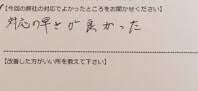 【今回の弊社の対応でよかったところをお聞かせください】
対応の早さが良かった
【改善した方がいい所を教えて下さい】